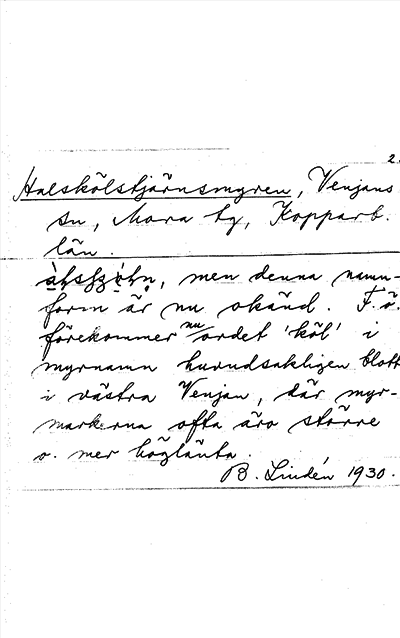 2.
Halskölstjärnsmyren, Venjans
sn, Mora tg, Kopparb.
län.
men denna namn-
form är nu okänd. F.ö.
förekommer nu ordet 'köl' i
myrnamn huvudsakligen blott
i västra Venjan, där myr-
markerna ofta äro större
o. mer höglänta.
B. Lindén 1930.